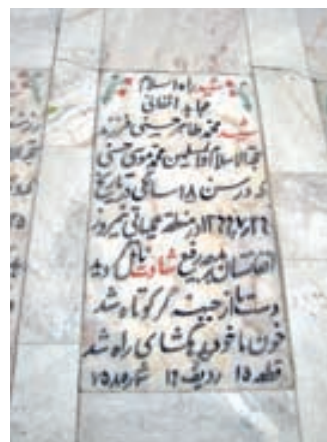 شهید راه اسلام
مجاهد افغانی
شهید محمد طاهر حسنی فرزند
حجة الاسلام والمسلمین محمد موسی حسنی
که در سن ۱۸ سالگی در تاریخ
در منطقه عملیاتی نیمروز
افغانستان به درجه رفیع شهادت نائل گردید
دست ما از جبهه گر کوتاه شد
خون ما خود رهگشای راه شد
قطعه ۱۵ ردیف ۱۲